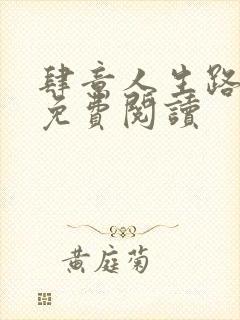 肆意人生路
免費閱讀
黄庭菊